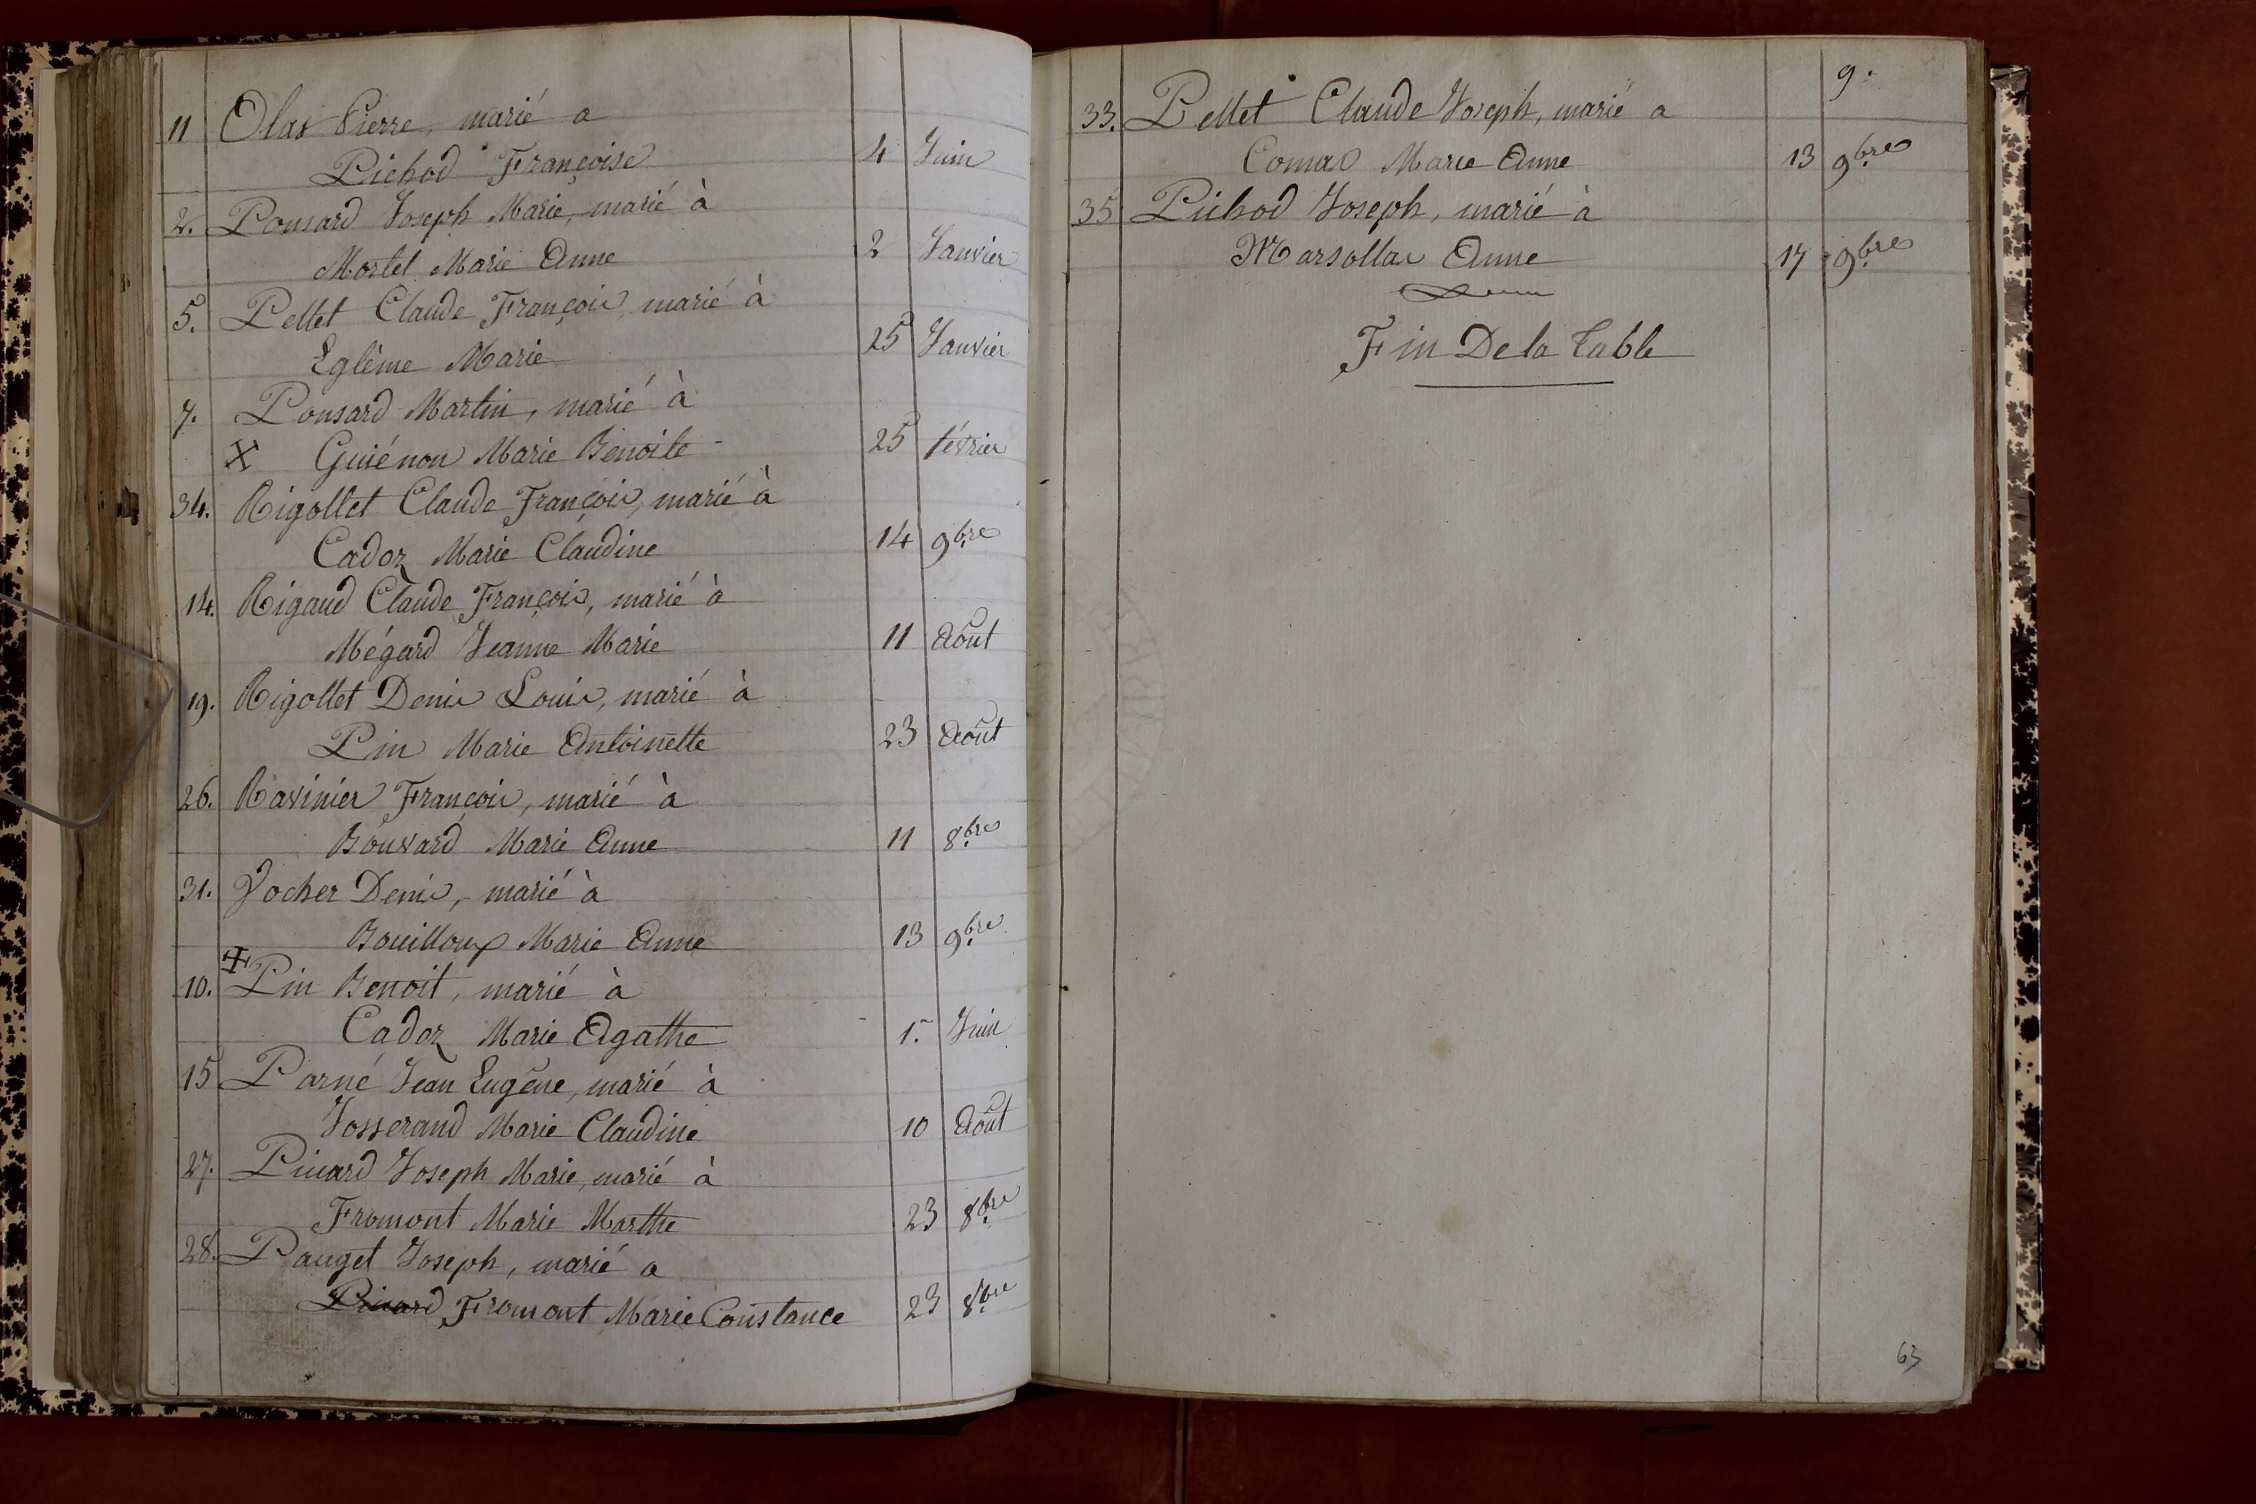 11 Olas Pierre, marié a
Pichod Françoise 4 Juin
2. Ponsard Joseph Marie, marié à
Mortel Marie Anne 2 Janvier
5. Pellet Claude François, marié à
Eglème Marie 25 Janvier
7. Ponsard Martin, marié à
Guiénon Marie Benoite 25 février
34. Rigollet Claude François, marié à
Cadoz Marie Claudine 14 9bre
14. Rigaud Claude François, marié à
Mégard Jeanne Marie 11 Août
19. Rigollet Denis Louis, marié à
Pin Marie Antoinette 23 Août
26. Ravinier François, marié à
Bouvard Marie Anne 11 8bre
31. Vocher Denis, marié à
Bouilloux Marie Anne 13 9bre
10. Pin Benoit, marié à
Cadoz Marie Agathe 1.r Juin
15 Parné Jean Eugêne, marié à
Josserand Marie Claudine 10 Août
27. Picard Joseph Marie, marié à
Fromont Marie Marthe 23 8bre
28. Pauget Joseph, marié a
Picard Fromont Marie Constance 23 8bre
9.
33. Pellet Claude Joseph, marié a
Comas Marie Anne 13 9bre
35 Pichod Joseph, marié à
Marsollac Anne 17 9bre
Fin De la Table
63